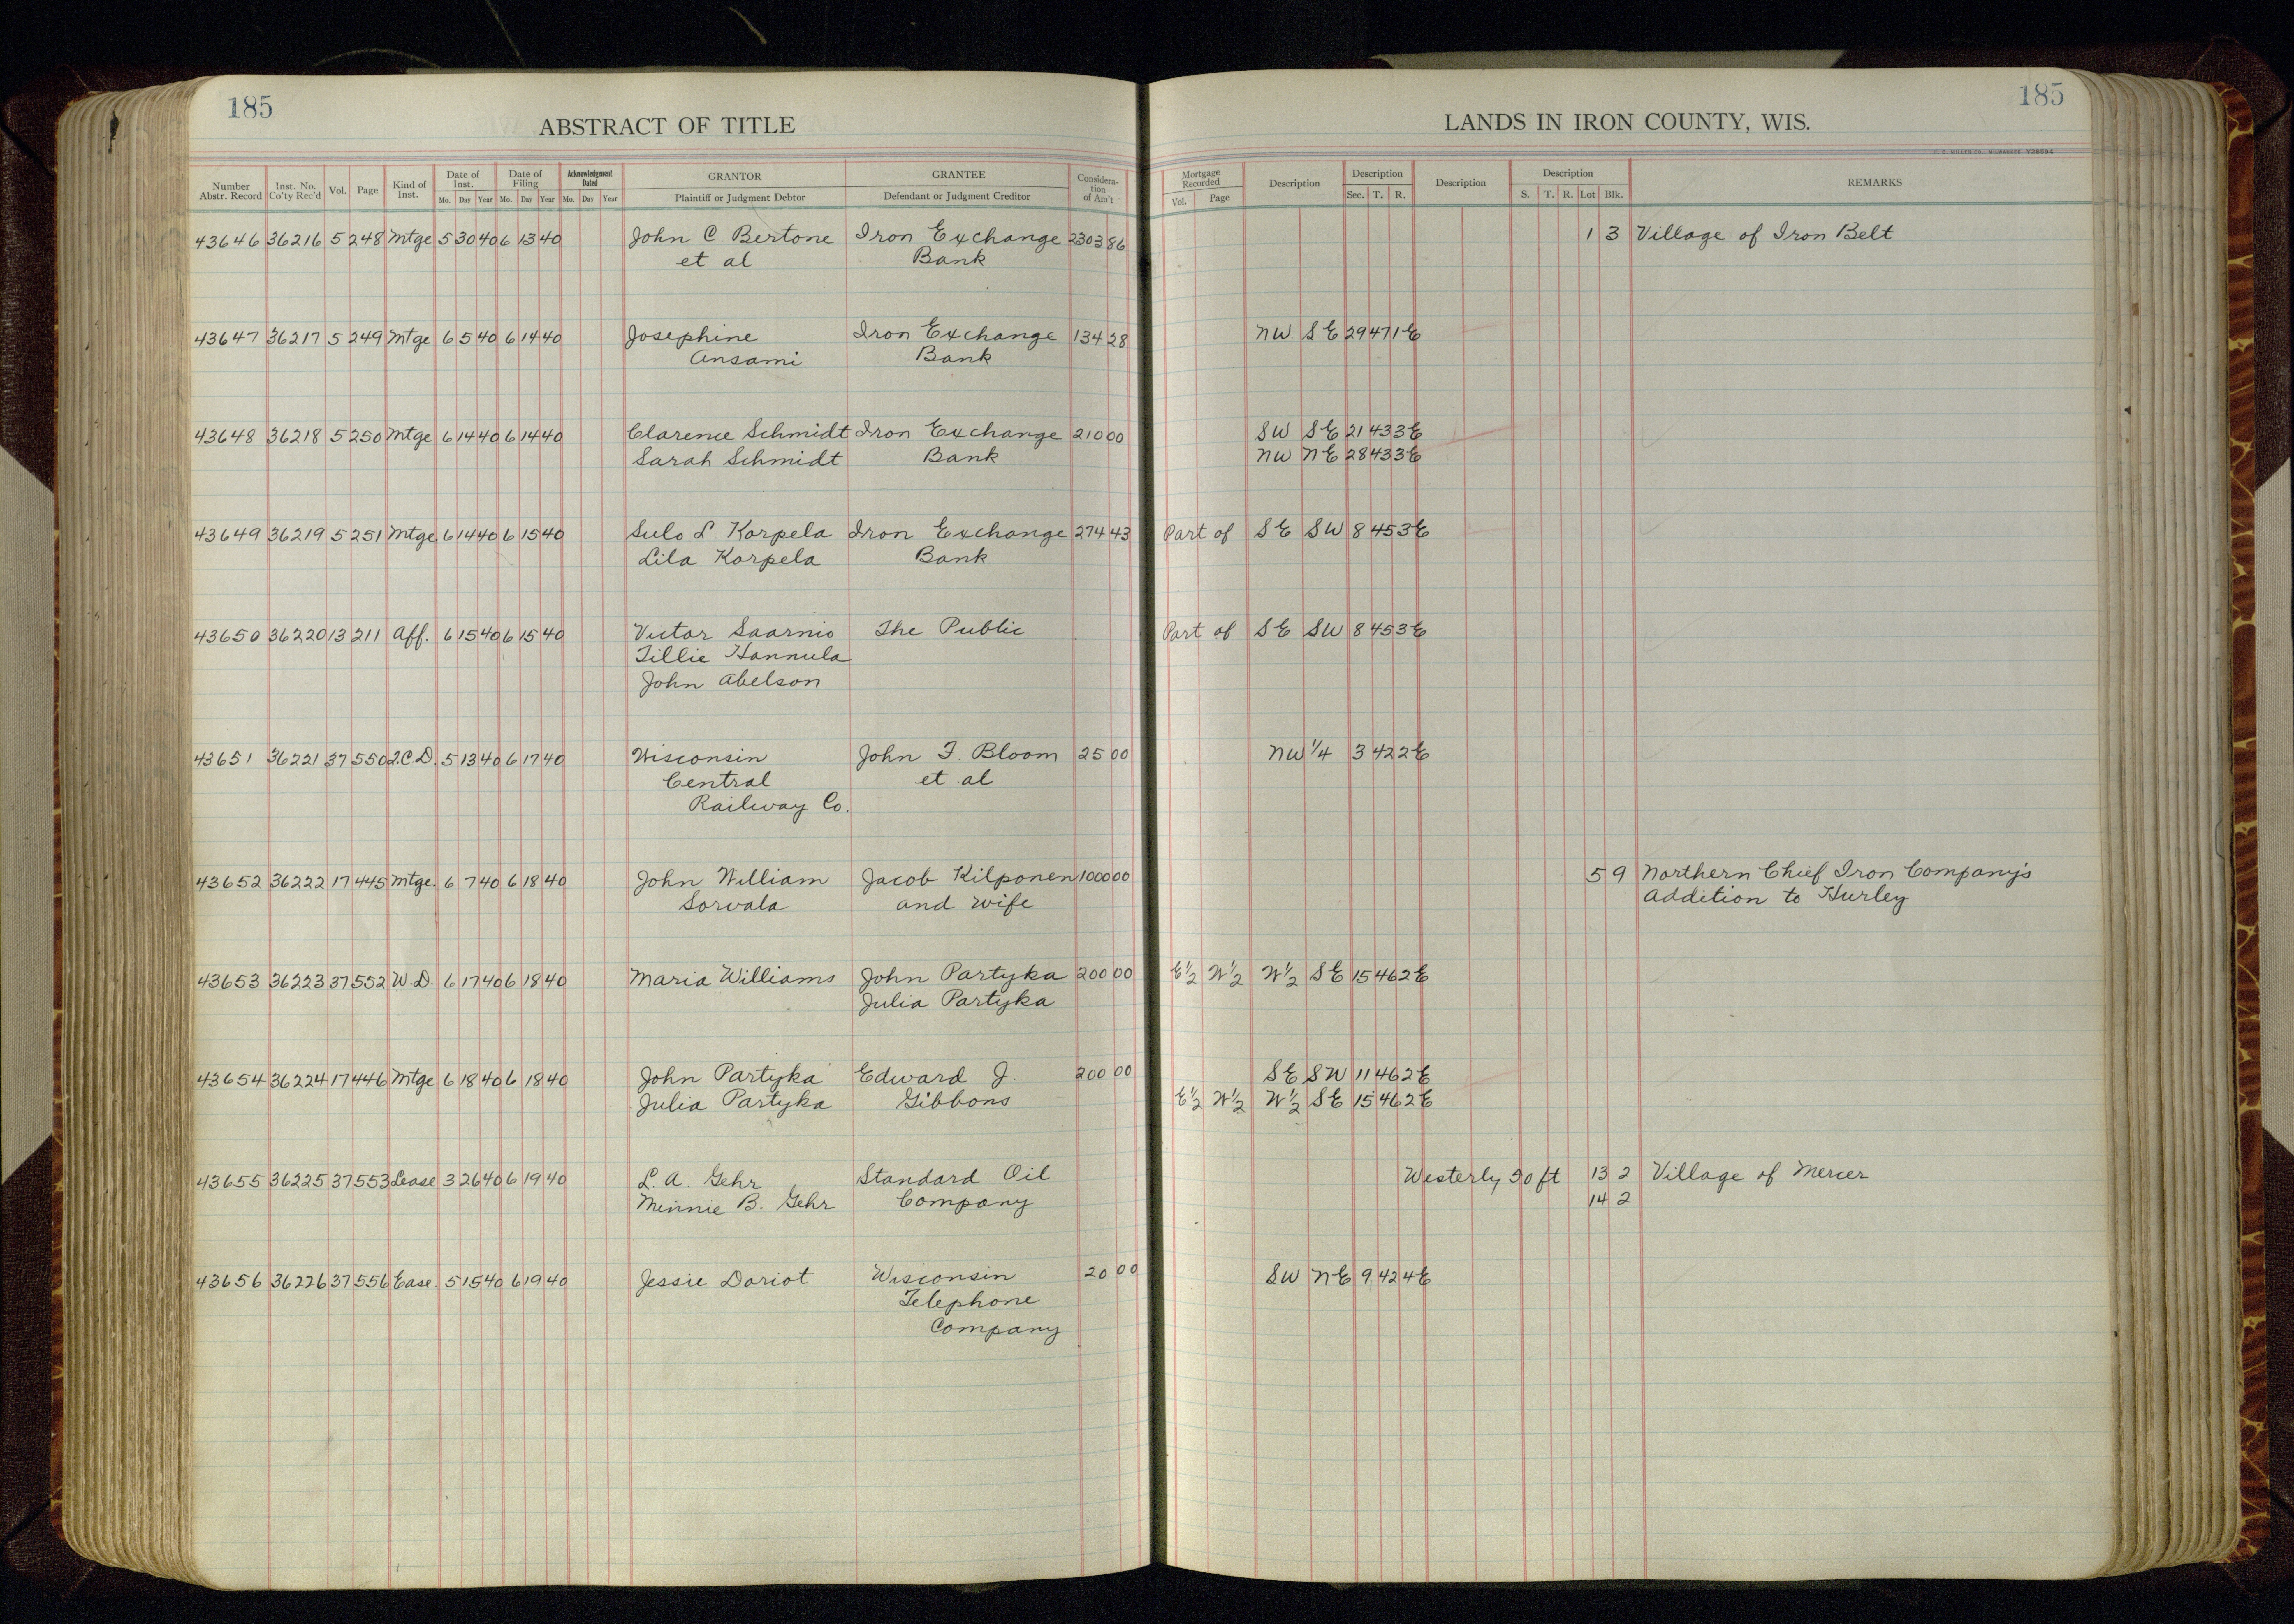 185
185
ABSTRACT OF TITLE
LANDS IN IRON COUNTY, WIS.
Number Abstr. Record Inst. No. Co'ty Rec'd Vol. Page Kind of Inst. Date of Inst. Mo. Day Year Date of Filing Mo. Day Year Acknowledgment Dated Mo. Day Year GRANTOR Plaintiff or Judgment Debtor GRANTEE Defendant or Judgment Creditor Consideration of Am't Mortgage Recorded Vol. Page Description Description Sec. T. R. Description Description S. T. R. Lot Blk. REMARKS
43646 36216 5 248 Mtge 5 30 40 6 13 40 John C. Bertone Iron Exchange 2303 86 1 3 Village of Iron Belt
et al Bank
43647 36217 5 249 Mtge 6 5 40 6 14 40 Josephine Iron Exchange 134 28 NW SE 29 47 1E
Ansami Bank
43648 36218 5 250 Mtge 6 14 40 6 14 40 Clarence Schmidt Iron Exchange 210 00 SW SE 21 43 3E
Sarah Schmidt Bank NW NE 28 43 3E
43649 36219 5 251 Mtge. 6 14 40 6 15 40 Sulo L. Korpela Iron Exchange 274 43 Part of SE SW 8 45 3E
Lila Korpela Bank
43650 36220 13 211 Aff. 6 15 40 6 15 40 Victor Saarnio The Public Part of SE SW 8 45 3E
Tillie Hannula
John Abelson
43651 36221 37 550 Q.C.D. 5 13 40 6 17 40 Wisconsin John F. Bloom 25 00 NW 1/4 3 42 2E
Central et al
Railway Co.
43652 36222 17 445 Mtge. 6 7 40 6 18 40 John William Jacob Kilponen 1000 00 5 9 Northern Chief Iron Company's
Sorvala and wife Addition to Hurley
43653 36223 37 552 W.D. 6 17 40 6 18 40 Maria Williams John Partyka 200 00 E1/2 W1/2 W1/2 SE 15 46 2E
Julia Partyka
43654 36224 17 446 Mtge 6 18 40 6 18 40 John Partyka Edward J. 200 00 SE SW 11 46 2E
Julia Partyka Gibbons E1/2 W1/2 W1/2 SE 15 46 2E
43655 36225 37 553 Lease 3 26 40 6 19 40 L. A. Gehr Standard Oil Westerly 50 ft 13 2 Village of Mercer
Minnie B. Gehr Company 14 2
43656 36226 37 556 Ease. 5 15 40 6 19 40 Jessie Doriot Wisconsin 20 00 SW NE 9 42 4E
Telephone
Company